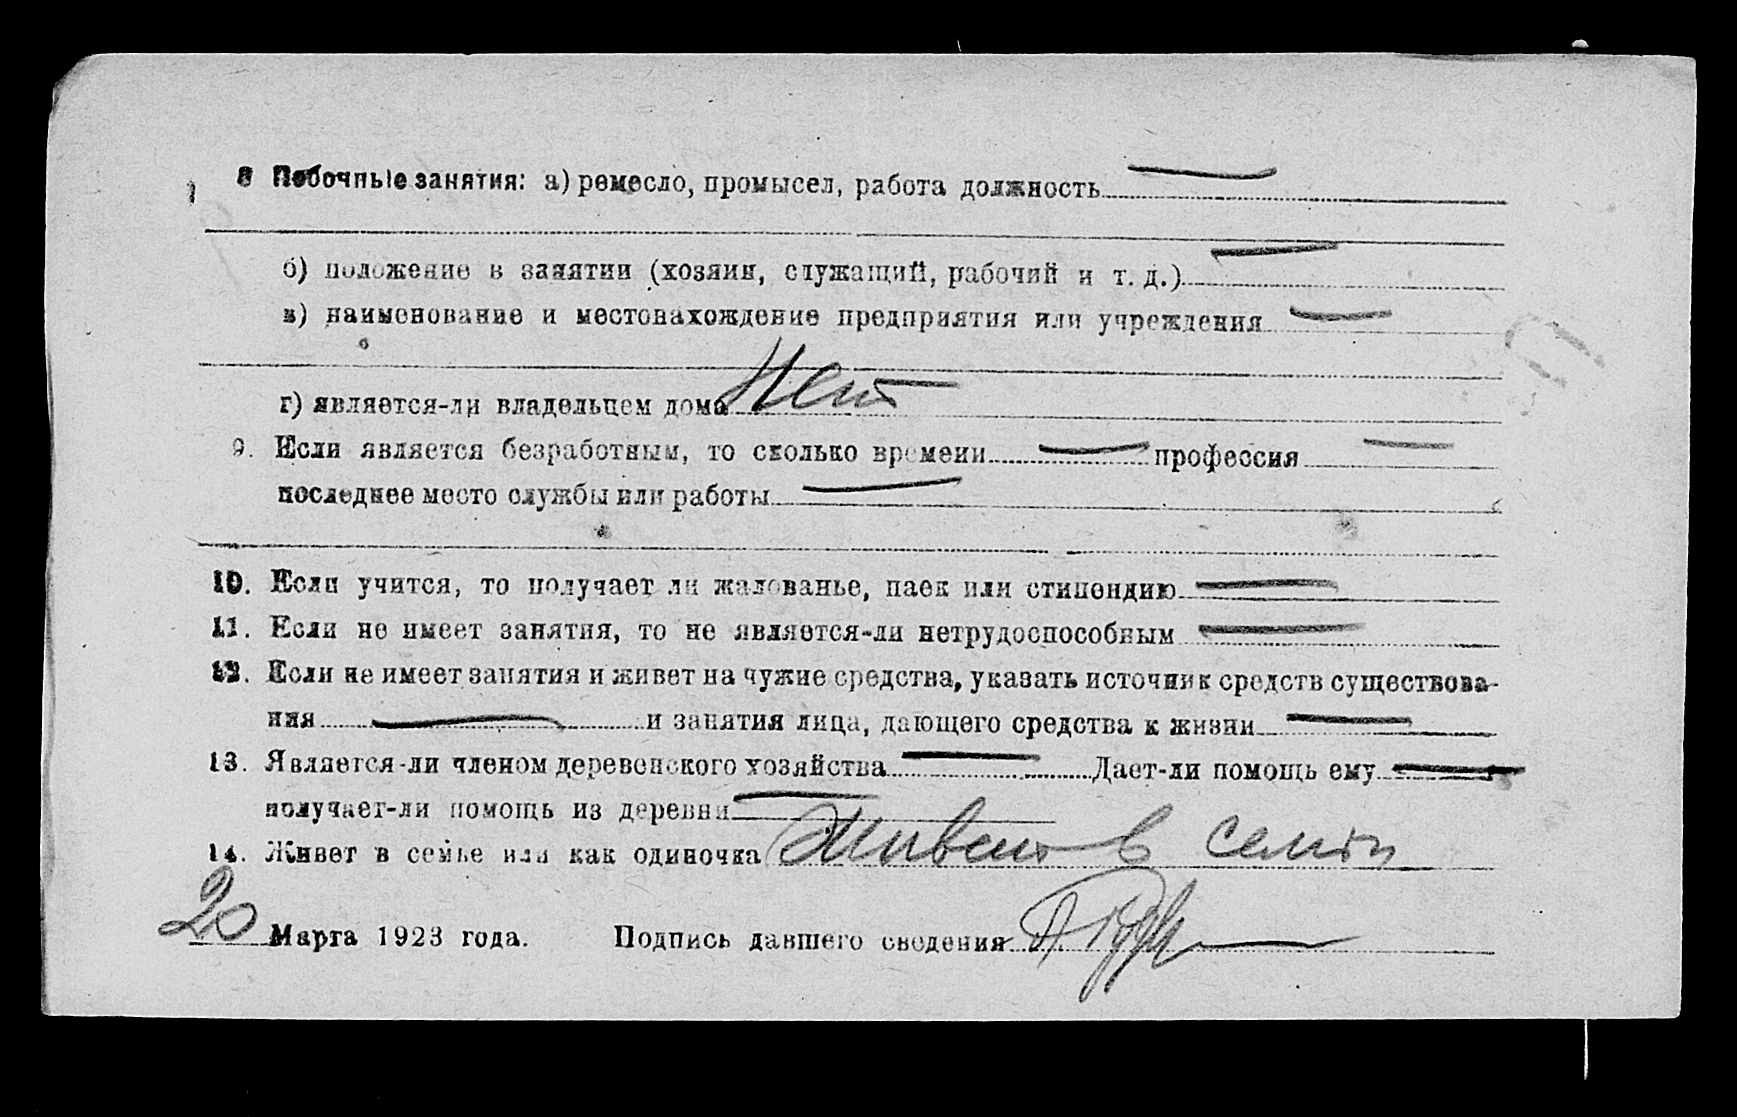 8 Побочные занятия: а) ремесло, промысел, работа должность
б) положение в занятии (хозяин, служащий, рабочий и т. д.)
в) наименование и местонахождение предприятия или учреждения
г) является-ли владельцем дома Нет
9. Если является безработным, то сколько времени — профессия —
последнее место службы или работы —
10. Если учится, то получает ли жалованье, паек или стипендию —
11. Если не имеет занятия, то не является-ли нетрудоспособным —
12. Если не имеет занятия и живет на чужие средства, указать источник средств существова-
ния — и занятия лица, дающего средства к жизни —
13. Является-ли членом деревенского хозяйства — Дает-ли помощь ему —
получает-ли помощь из деревни —
14. Живет в семье или как одиночка Живет в семьи
20 Марта 1923 года. Подпись давшего сведения